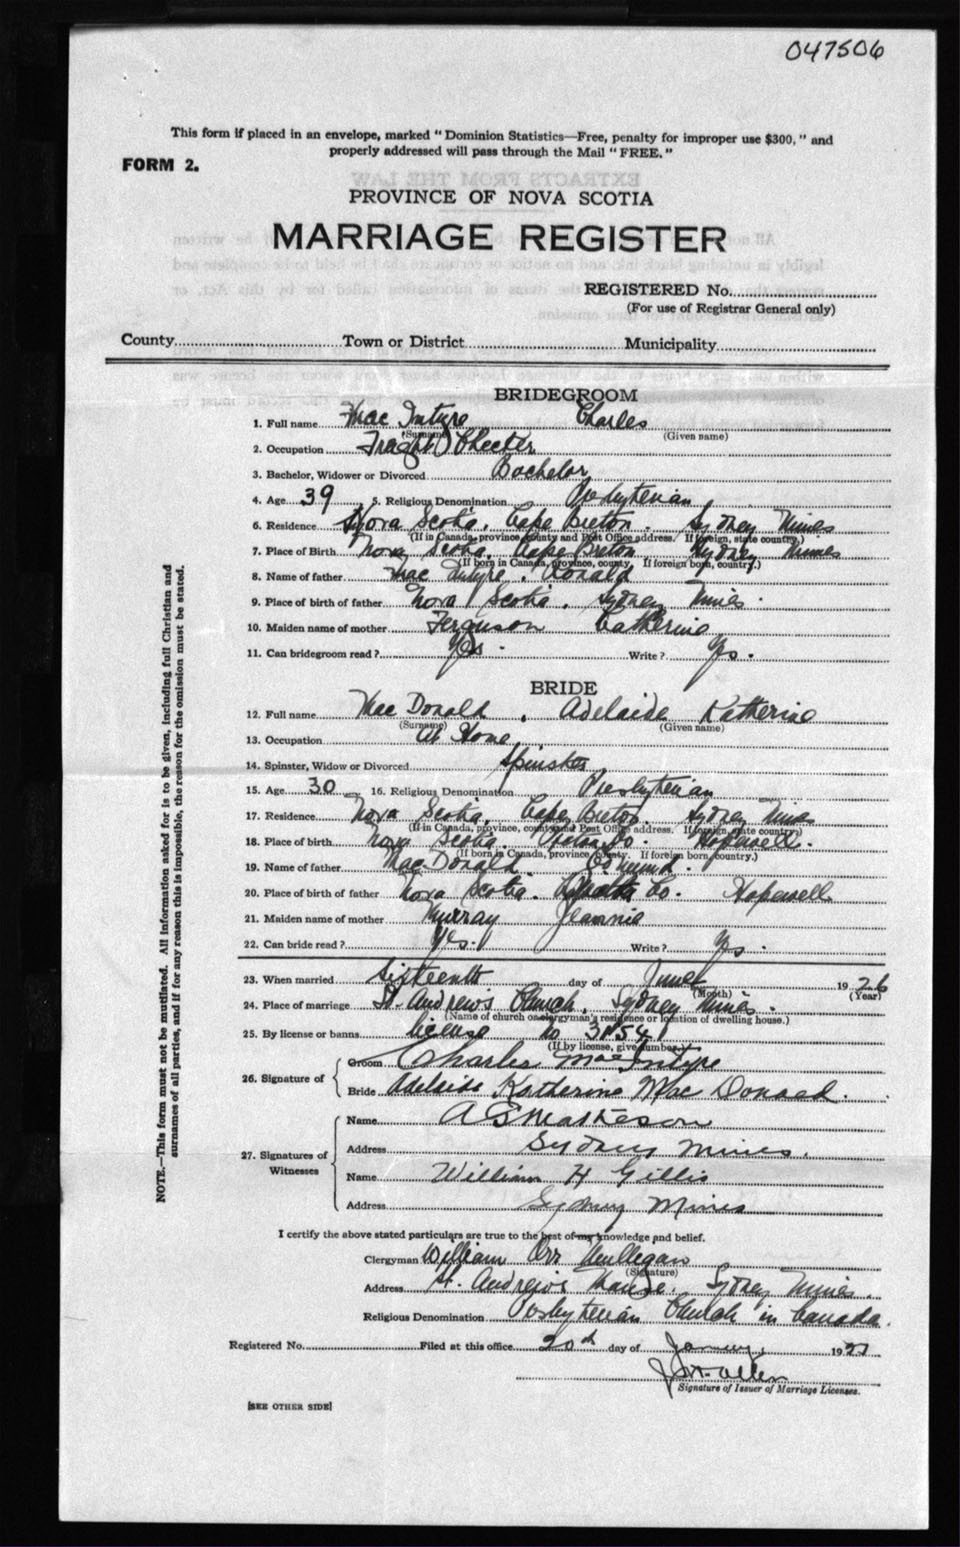 047506
This form if placed in an envelope, marked "Dominion Statistics—Free, penalty for improper use $300," and
properly addressed will pass through the Mail "FREE."
FORM 2.
PROVINCE OF NOVA SCOTIA
MARRIAGE REGISTER
REGISTERED No.
(For use of Registrar General only)
County Town or District Municipality
BRIDEGROOM
1. Full name Mac Intyre Charles
(Surname) (Given name)
2. Occupation Freight Checker
3. Bachelor, Widower or Divorced Bachelor
4. Age 39 5. Religious Denomination Presbyterian
6. Residence Nova Scotia. Cape Breton. Sydney Mines
(If in Canada, province, county and Post Office address. If foreign, state country.)
7. Place of Birth Nova Scotia. Cape Breton Sydney Mines
(If born in Canada, province, county. If foreign born, country.)
8. Name of father Mac Intyre. Ronald
9. Place of birth of father Nova Scotia. Sydney Mines.
10. Maiden name of mother Ferguson Catherine
11. Can bridegroom read? Yes. Write? Yes.
BRIDE
12. Full name Mac Donald, Adelaide Katherine
(Surname) (Given name)
13. Occupation At Home
14. Spinster, Widow or Divorced Spinster
15. Age 30 16. Religious Denomination Presbyterian
17. Residence Nova Scotia. Cape Breton. Sydney Mines
(If in Canada, province, county and Post Office address. If foreign, state country)
18. Place of birth Nova Scotia. Co. Hopewell.
(If born in Canada, province county. If foreign born, country.)
19. Name of father Mac Donald.
20. Place of birth of father Nova Scotia. Co. Hopewell
21. Maiden name of mother Murray Jeannie
22. Can bride read? Yes. Write? Yes.
23. When married Sixteenth day of June 1926
(Month) (Year)
24. Place of marriage St. Andrew's Church, Sydney Mines.
(Name of church or clergyman's residence or location of dwelling house.)
25. By license or banns license
(If by license, give number)
26. Signature of
Groom Charles MacIntyre
Bride Adelaide Katherine Mac Donald.
27. Signatures of Witnesses
Name Matheson
Address Sydney Mines.
Name William H Gillis
Address Sydney Mines
I certify the above stated particulars are true to the best of my knowledge and belief.
Clergyman William Orr Mulligan
(Signature)
Address St. Andrew's Manse. Sydney Mines.
Religious Denomination Presbyterian Church in Canada.
Registered No. Filed at this office 20th day of January, 1927
Allen
Signature of Issuer of Marriage Licenses.
[SEE OTHER SIDE]
NOTE.—This form must not be mutilated. All information asked for is to be given, including full Christian and
surnames of all parties, and if for any reason this is impossible, the reason for the omission must be stated.